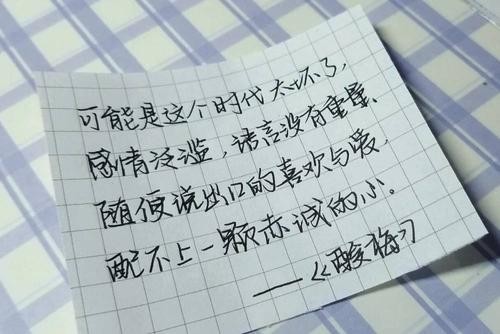 可能是这个时代太坏了，
感情泛滥，语言没有重量，
随便说出口的喜欢与爱，
配不上一颗赤诚的心。
——《酸梅》